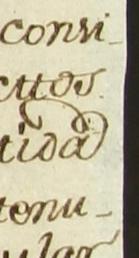 consi-
cttos
tida
tenu-
ular